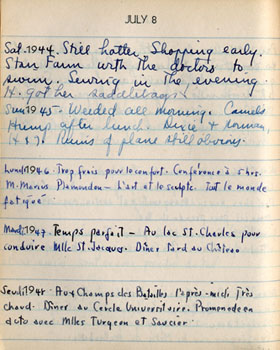 JULY 8
Sat. 1944. Still hotter. Shopping early.
Starr Farm with the doctors to
swim. Sewing in the evening
H. got her saddlebags.
Sun 1945 - Weeded all morning. Camels
Hump after lunch. Dixie & Norman
H & J. Ruins of plane still obvious.
Lundi 1946 - Trop frais pour le confort. Conférence à 5 hrs.
M. Marius Plamondon - L'art et le sculpt. Tout le monde
fatigué
Mardi 1947 Temps parfait - Au lac St. Charles pour
conduire Mlle St. Jacques. Dîner tard au Château
1948 - Aux Champs des Batailles l'après-midi Très
chaud. Dîner au Cercle Universitaire. Promenade en
auto avec Mlles Turgeon et Saucier.